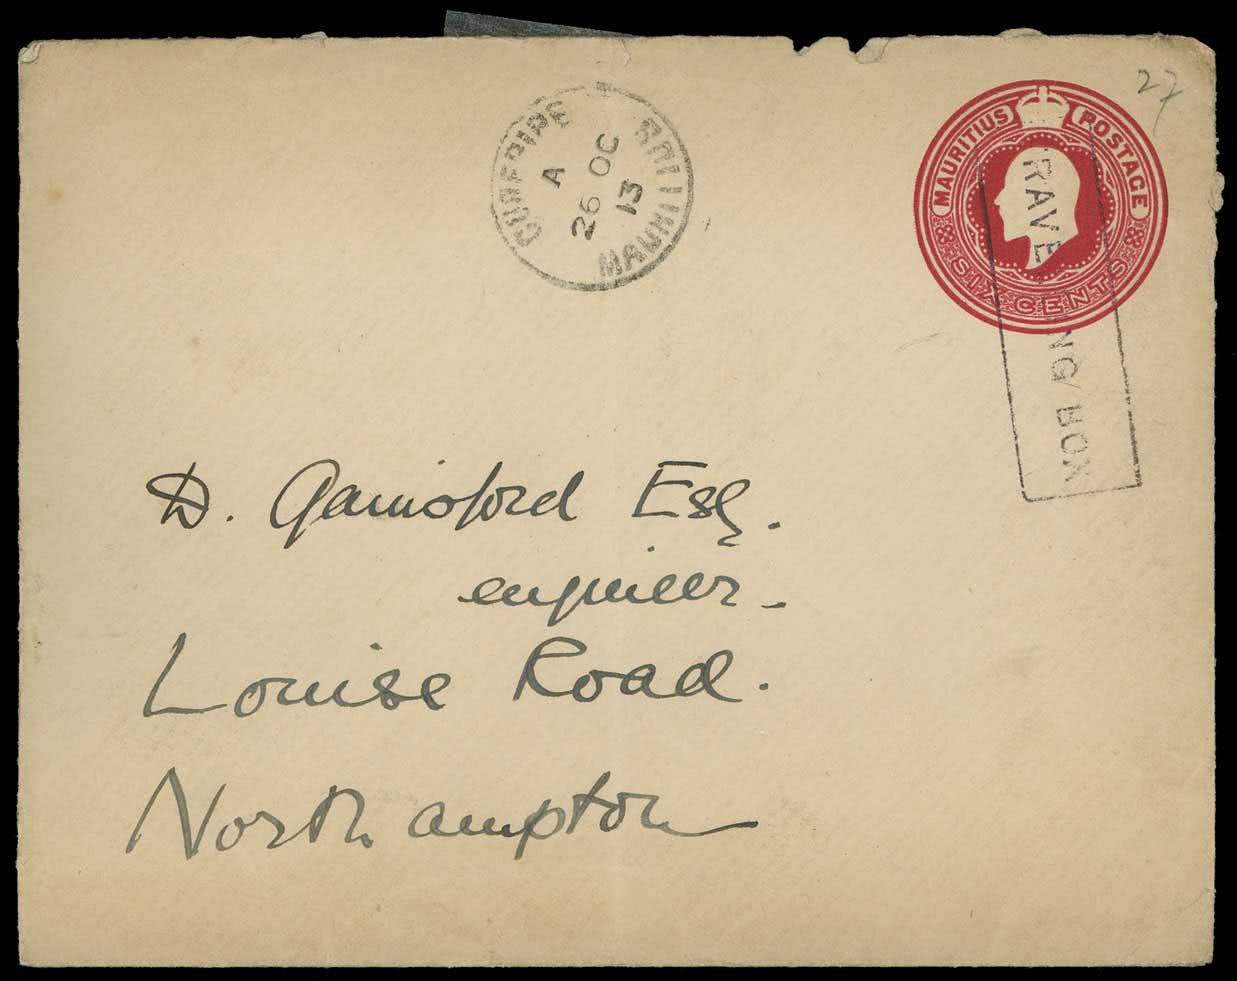 27
MAURITIUS POSTAGE
SIX CENTS
RAVE NG BOX
CUREPIPE
A
26 OC
13
MAURITIUS
D. Gainsford Esq.
engineer.
Louise Road.
Northampton